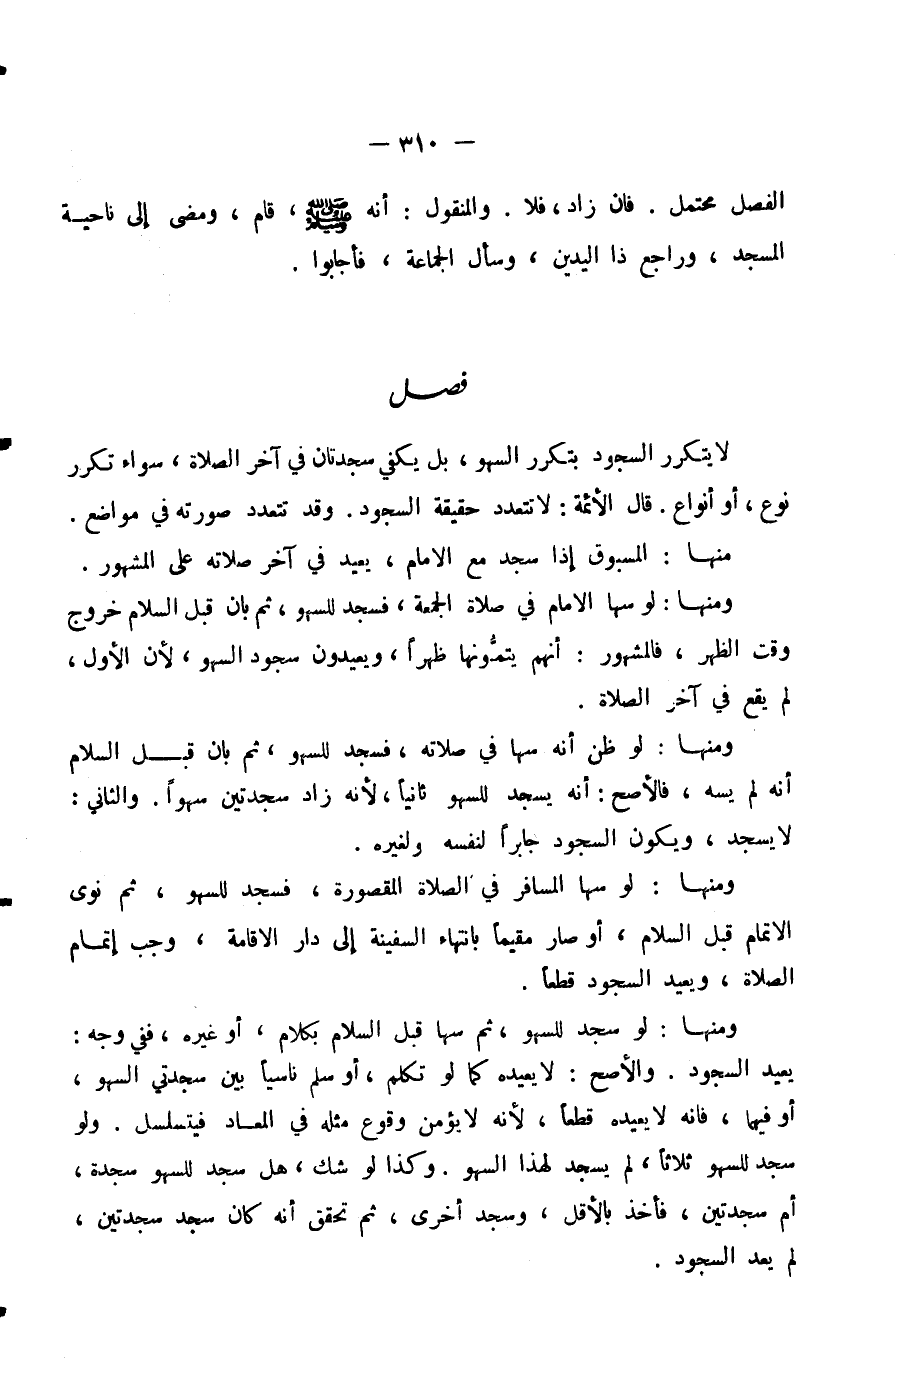 — ٣١٠ —
الفصل محتمل . فان زاد ، فلا . والمنقول : أنه ﷺ ، قام ، ومضى إلى ناحيـة
المسجد ، وراجع ذا اليدين ، وسأل الجماعة ، فأجابوا .
فصـل
لا يتكرر السجود بتكرر السهو ، بل يكفي سجدتان في آخر الصلاة ، سواء تكرر
نوع ، أو أنواع . قال الأئمة : لا تتعدد حقيقة السجود . وقد تتعدد صورته في مواضع .
منهـا : المسبوق إذا سجد مع الامام ، يعيد في آخر صلاته على المشهور .
ومنهـا : لو سها الامام في صلاة الجمعة ، فسجد للسهو ، ثم بان قبل السلام خروج
وقت الظهر ، فالمشهور : أنهم يتمُّونها ظهراً ، ويعيدون سجود السهو ، لأن الأول ،
لم يقع في آخر الصلاة .
ومنهـا : لو ظن أنه سها في صلاته ، فسجد للسهو ، ثم بان قبــل السلام
أنه لم يسه ، فالأصح : أنه يسجد للسهو ثانياً ، لأنه زاد سجدتين سهواً . والثاني :
لا يسجد ، ويكون السجود جابراً لنفسه ولغيره .
ومنهـا : لو سها المسافر في الصلاة المقصورة ، فسجد للسهو ، ثم نوى
الاتمام قبل السلام ، أو صار مقيماً بانتهاء السفينة إلى دار الاقامة ، وجب إتمـام
الصلاة ، ويعيد السجود قطعاً .
ومنهـا : لو سجد للسهو ، ثم سها قبل السلام بكلام ، أو غيره ، ففي وجه :
يعيد السجود . والأصح : لا يعيده كما لو تكلم ، أو سلم ناسياً بين سجدتي السهو ،
أو فيهما ، فانه لا يعيده قطعاً ، لأنه لا يؤمن وقوع مثله في المعـاد فيتسلسل . ولو
سجد للسهو ثلاثاً ، لم يسجد لهذا السهو . وكذا لو شك ، هل سجد للسهو سجدة ،
أم سجدتين ، فأخذ بالأقل ، وسجد أخرى ، ثم تحقق أنه كان سجد سجدتين ،
لم يعد السجود .